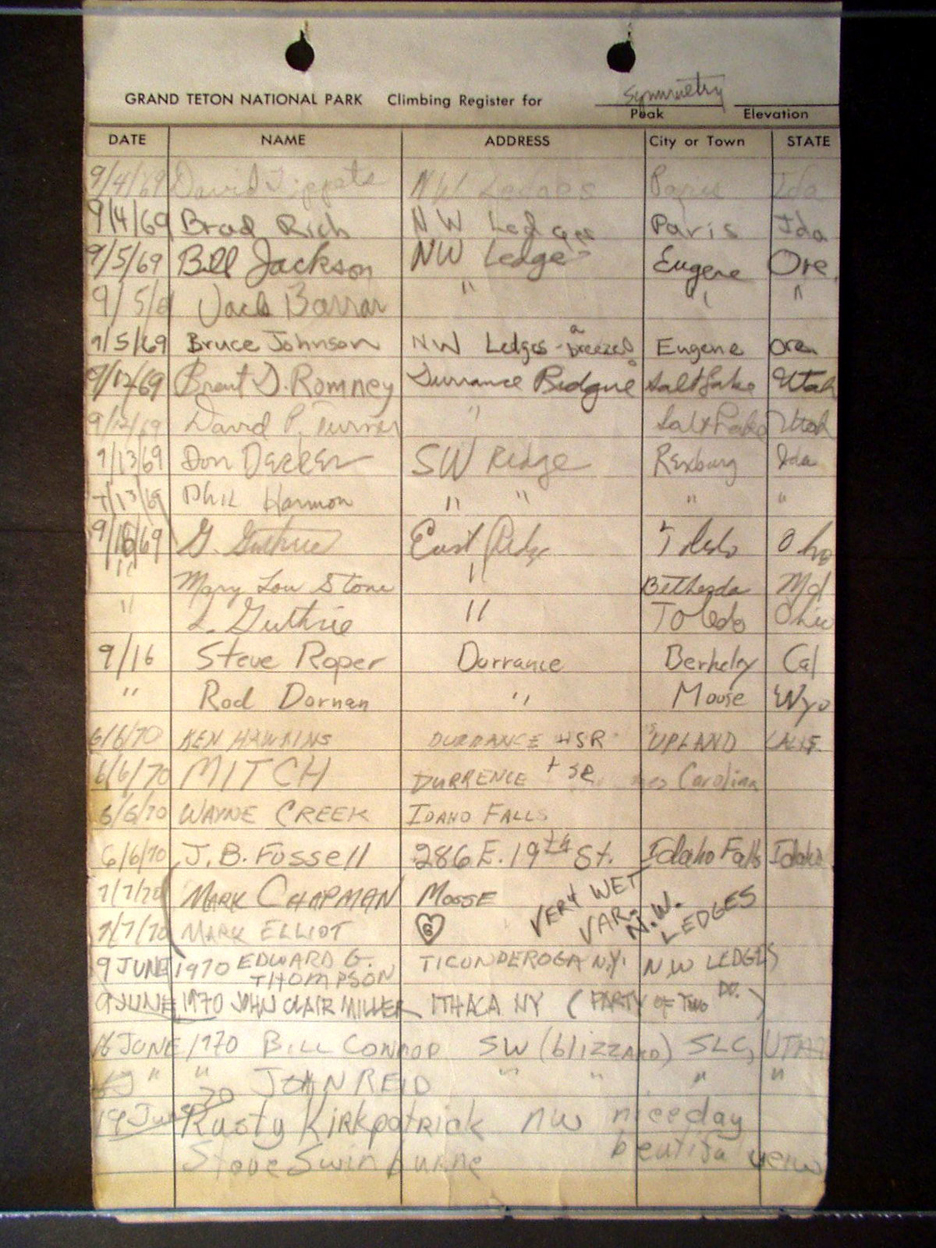 Symmetry
GRAND TETON NATIONAL PARK Climbing Register for
Peak Elevation
DATE NAME ADDRESS City or Town STATE
9/4/69 David Tippets NW Ledges Paris Ida
9/4/69 Brad Rich NW Ledges Paris Ida
9/5/69 Bill Jackson NW Ledges Eugene Ore.
9/5/6 Jack Barrar " " "
9/5/69 Bruce Johnson NW Ledges - a breeze! Eugene Ore.
9/12/69 Brent D. Romney Durrance Ridge Salt Lake Utah
9/12/69 David P. Turner " Salt Lake Utah
9/13/69 Don Decker SW Ridge Rexburg Ida
9/13/69 Phil Harmon " " " "
9/16/69 G. Guthrie East Ridge Toledo Ohio
" Mary Lou Stone " Bethesda Md
" L. Guthrie " Toledo Ohio
9/16 Steve Roper Dorrance Berkeley Cal
" Rod Dornan " Moose Wyo
6/6/70 KEN HAWKINS DURRANCE + SR UPLAND CALIF.
6/6/70 MITCH DURRENCE + SR Carolina
6/6/70 WAYNE CREEK IDAHO FALLS
6/6/70 J.B. Fussell 286 E. 19th St. Idaho Falls Idaho
7/7/70 MARK CHAPMAN MOOSE VERY WET
7/7/70 MARK ELLIOT G VAR. N.W. LEDGES
9 JUNE 1970 EDWARD G. THOMPSON TICONDEROGA N.Y. NW LEDGES
9 JUNE 1970 JOHN CLAIR MILLER ITHACA NY (PARTY OF TWO DD.)
16 JUNE/1970 BILL CONROD SW (blizzard) SLC, UTAH
" " JOHN REID " " " "
19 June 70 Rusty Kirkpatrick NW niceday
Steve Swinburne beutifa veiw